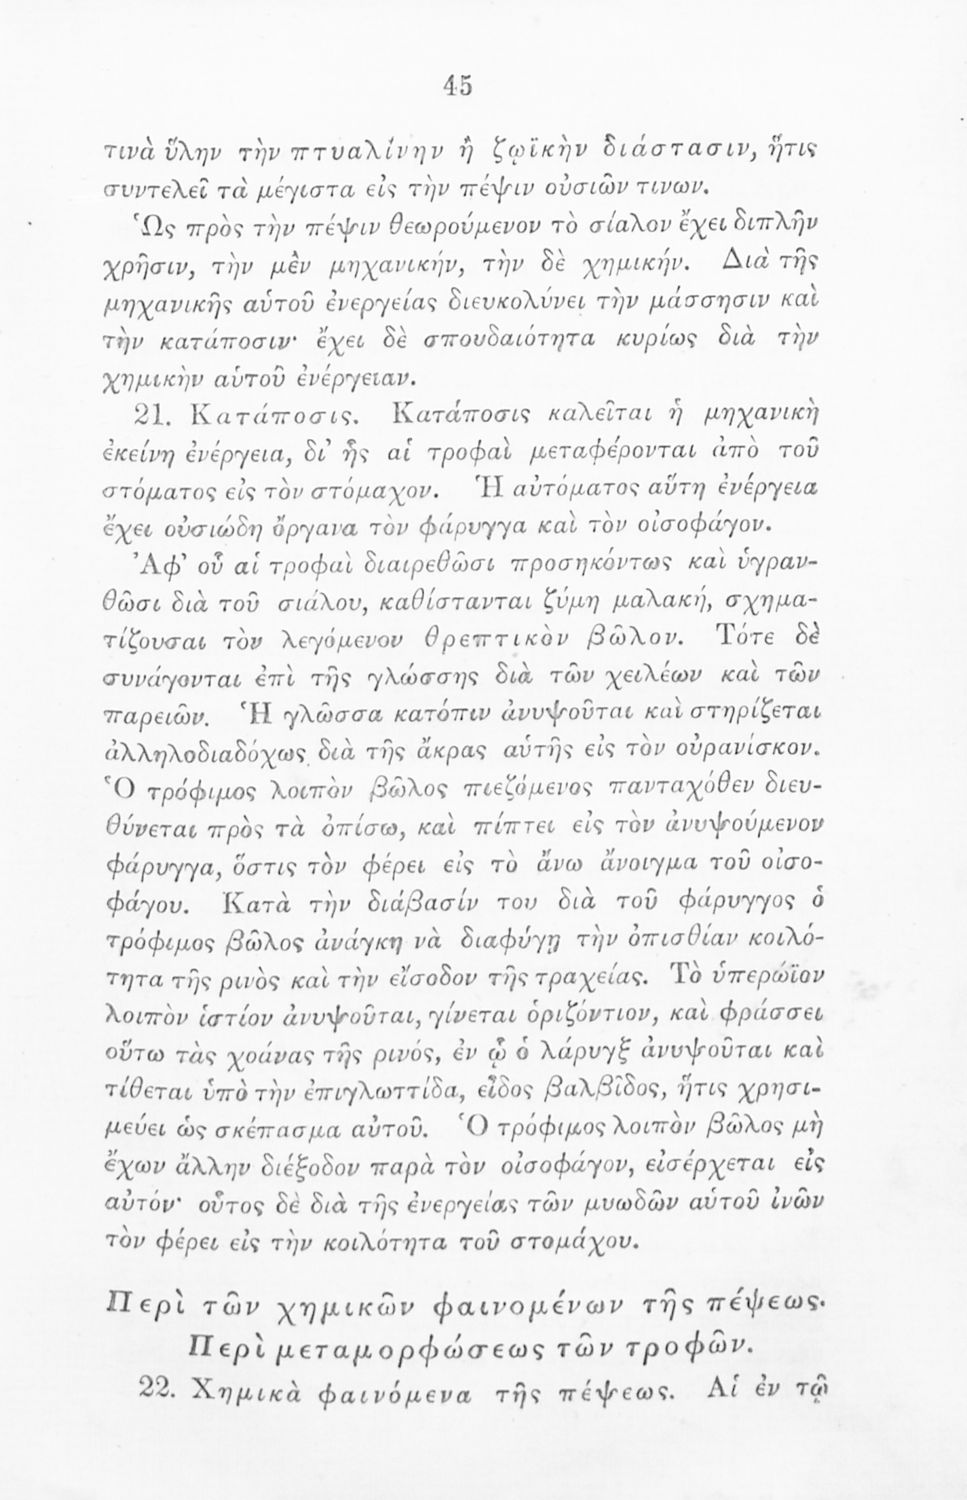 45
τινὰ ὕλην τὴν πτυαλίνην ἢ ζῳϊκὴν διάστασιν, ἥτις
συντελεῖ τὰ μέγιστα εἰς τὴν πέψιν οὐσιῶν τινων.
Ὡς πρὸς τὴν πέψιν θεωρούμενον τὸ σίαλον ἔχει διπλῆν
χρῆσιν, τὴν μὲν μηχανικήν, τὴν δὲ χημικήν. Διὰ τῆς
μηχανικῆς αὑτοῦ ἐνεργείας διευκολύνει τὴν μάσσησιν καὶ
τὴν κατάποσιν· ἔχει δὲ σπουδαιότητα κυρίως διὰ τὴν
χημικὴν αὑτοῦ ἐνέργειαν.
21. Κατάποσις. Κατάποσις καλεῖται ἡ μηχανικὴ
ἐκείνη ἐνέργεια, δι' ἧς αἱ τροφαὶ μεταφέρονται ἀπὸ τοῦ
στόματος εἰς τὸν στόμαχον. Ἡ αὐτόματος αὕτη ἐνέργεια
ἔχει οὐσιώδη ὄργανα τὸν φάρυγγα καὶ τὸν οἰσοφάγον.
Ἀφ' οὗ αἱ τροφαὶ διαιρεθῶσι προσηκόντως καὶ ὑγραν-
θῶσι διὰ τοῦ σιάλου, καθίστανται ζύμη μαλακή, σχημα-
τίζουσαι τὸν λεγόμενον θρεπτικὸν βῶλον. Τότε δὲ
συνάγονται ἐπὶ τῆς γλώσσης διὰ τῶν χειλέων καὶ τῶν
παρειῶν. Ἡ γλῶσσα κατόπιν ἀνυψοῦται καὶ στηρίζεται
ἀλληλοδιαδόχως διὰ τῆς ἄκρας αὑτῆς εἰς τὸν οὐρανίσκον.
Ὁ τρόφιμος λοιπὸν βῶλος πιεζόμενος πανταχόθεν διευ-
θύνεται πρὸς τὰ ὀπίσω, καὶ πίπτει εἰς τὸν ἀνυψούμενον
φάρυγγα, ὅστις τὸν φέρει εἰς τὸ ἄνω ἄνοιγμα τοῦ οἰσο-
φάγου. Κατὰ τὴν διάβασίν του διὰ τοῦ φάρυγγος ὁ
τρόφιμος βῶλος ἀνάγκη νὰ διαφύγῃ τὴν ὀπισθίαν κοιλό-
τητα τῆς ρινὸς καὶ τὴν εἴσοδον τῆς τραχείας. Τὸ ὑπερώϊον
λοιπὸν ἱστίον ἀνυψοῦται, γίνεται ὁριζόντιον, καὶ φράσσει
οὕτω τὰς χοάνας τῆς ρινός, ἐν ᾧ ὁ λάρυγξ ἀνυψοῦται καὶ
τίθεται ὑπὸ τὴν ἐπιγλωττίδα, εἶδος βαλβῖδος, ἥτις χρησι-
μεύει ὡς σκέπασμα αὐτοῦ. Ὁ τρόφιμος λοιπὸν βῶλος μὴ
ἔχων ἄλλην διέξοδον παρὰ τὸν οἰσοφάγον, εἰσέρχεται εἰς
αὐτόν· οὗτος δὲ διὰ τῆς ἐνεργείας τῶν μυωδῶν αὑτοῦ ἰνῶν
τὸν φέρει εἰς τὴν κοιλότητα τοῦ στομάχου.
Περὶ τῶν χημικῶν φαινομένων τῆς πέψεως.
Περὶ μεταμορφώσεως τῶν τροφῶν.
22. Χημικὰ φαινόμενα τῆς πέψεως. Αἱ ἐν τῷ